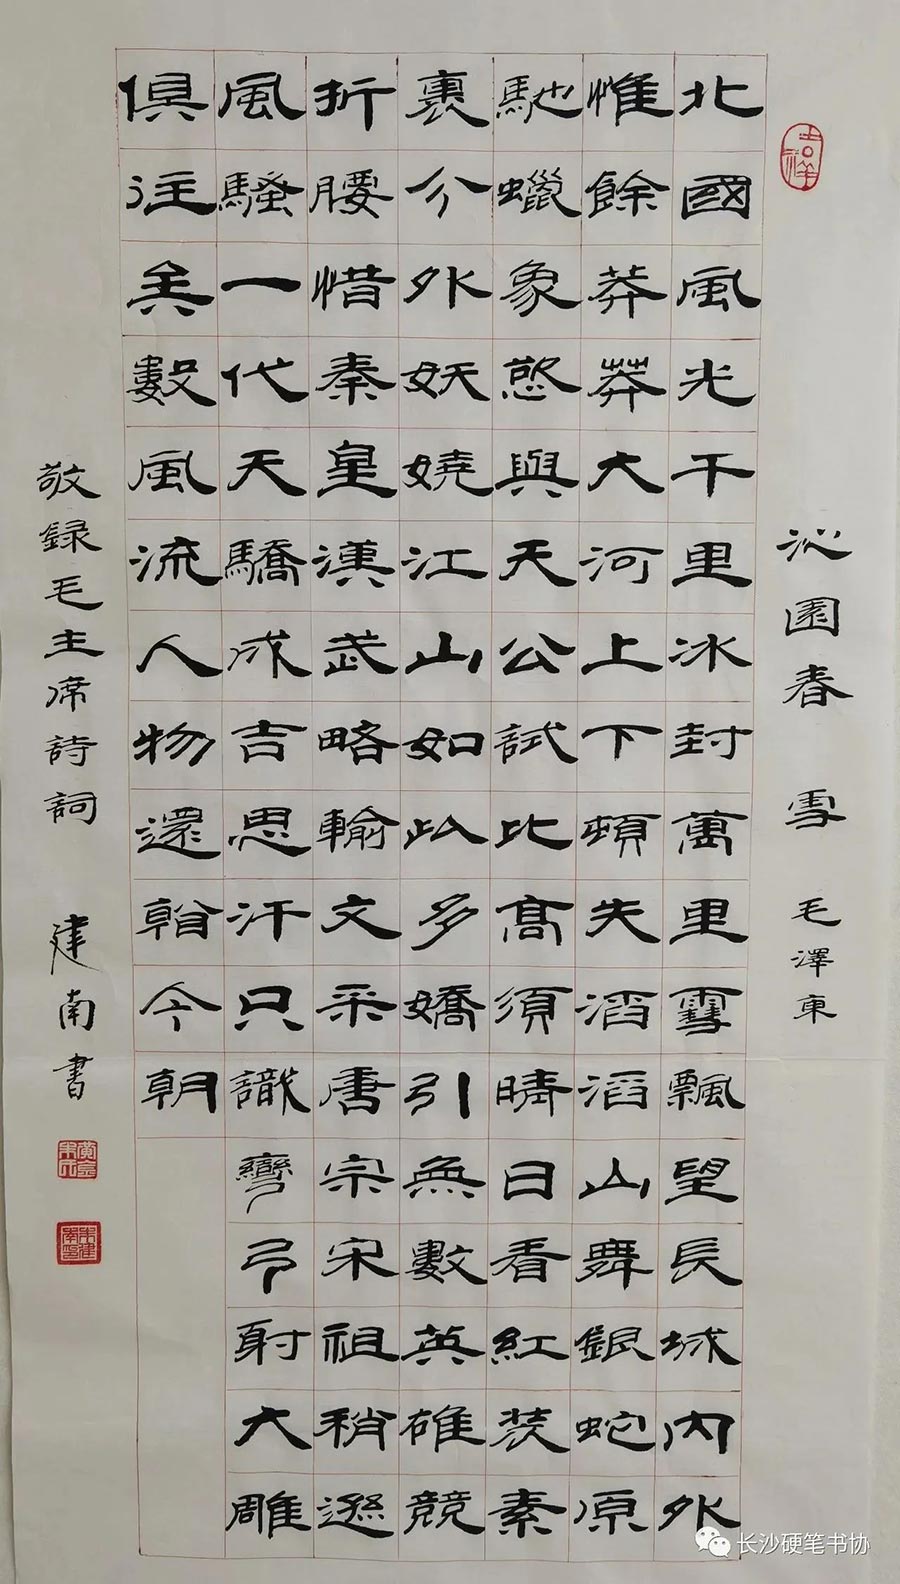 沁園春 雪 毛澤東
北國風光千里冰封萬里雪飄望長城内外
惟餘莽莽大河上下頓失滔滔山舞銀蛇原
馳蠟象慾與天公試比高須晴日看紅裝素
裹分外妖嬈江山如此多嬌引無數英雄競
折腰惜秦皇漢武略輸文采唐宗宋祖稍遜
風騷一代天驕成吉思汗只識彎弓射大雕
俱往矣數風流人物還看今朝
敬録毛主席詩詞 建南書
吉祥
长沙硬笔书协